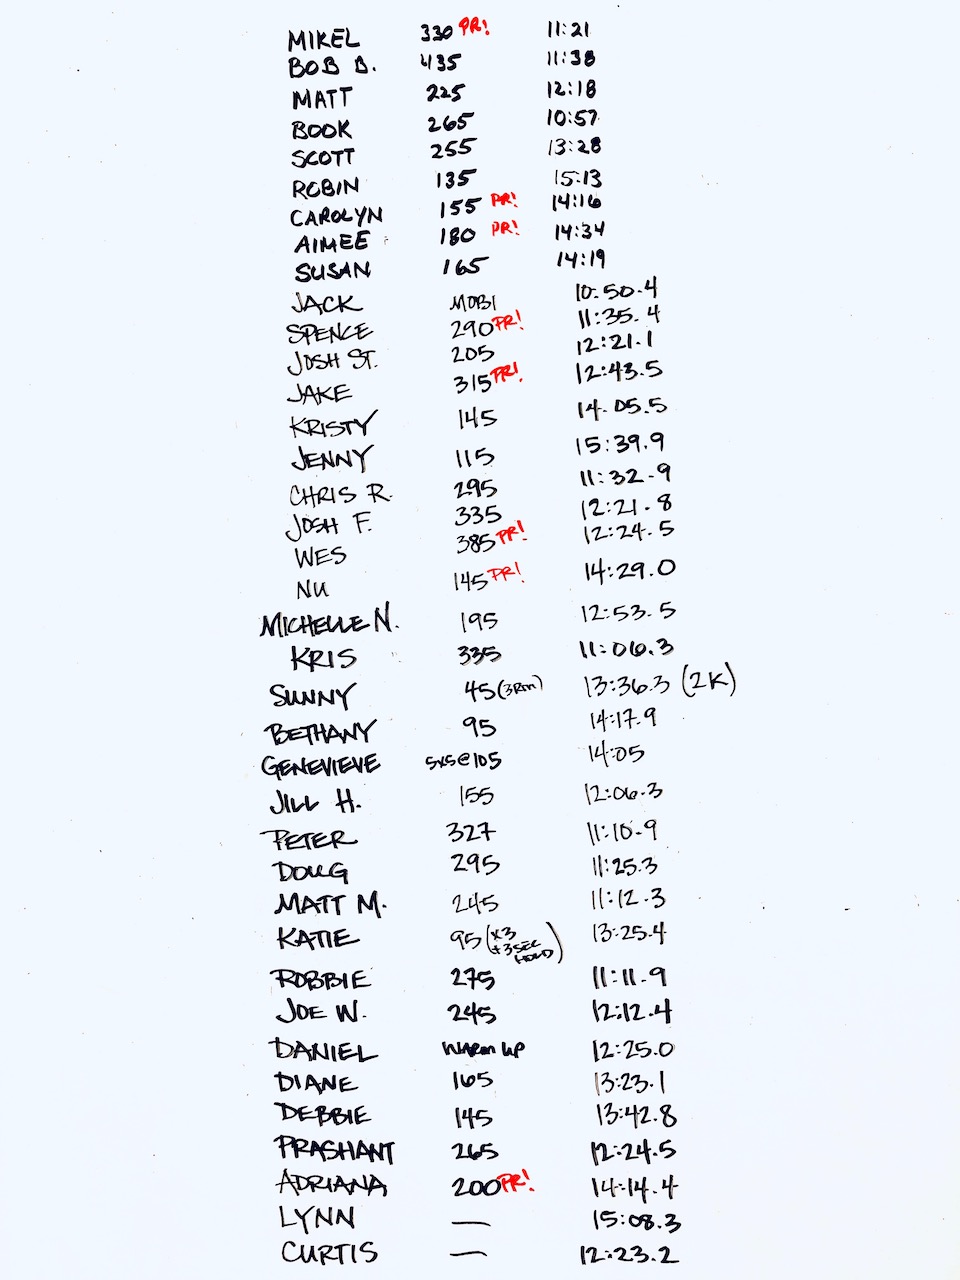 MIKEL 330 PR! 11:21
BOB D. 435 11:38
MATT 225 12:18
BOOK 265 10:57
SCOTT 255 13:28
ROBIN 135 15:13
CAROLYN 155 PR! 14:16
AIMEE 180 PR! 14:34
SUSAN 165 14:19
JACK MOBI 10:50.4
SPENCE 290 PR! 11:35.4
JOSH ST. 205 12:21.1
JAKE 315 PR! 12:43.5
KRISTY 145 14:05.5
JENNY 115 15:39.9
CHRIS R. 295 11:32.9
JOSH F. 335 12:21.8
WES 385 PR! 12:24.5
NU 145 PR! 14:29.0
MICHELLE N. 195 12:53.5
KRIS 335 11:06.3
SUNNY 45 (3RM) 13:36.3 (2K)
BETHANY 95 14:17.9
GENEVIEVE 5x5@105 14:05
JILL H. 155 12:06.3
PETER 327 11:10.9
DOUG 295 11:25.3
MATT M. 245 11:12.3
KATIE 95 (x3 +3SEC HOLD) 13:25.4
ROBBIE 275 11:11.9
JOE W. 245 12:12.4
DANIEL WARM UP 12:25.0
DIANE 165 13:23.1
DEBBIE 145 13:42.8
PRASHANT 265 12:24.5
ADRIANA 200 PR! 14:14.4
LYNN — 15:08.3
CURTIS — 12:23.2